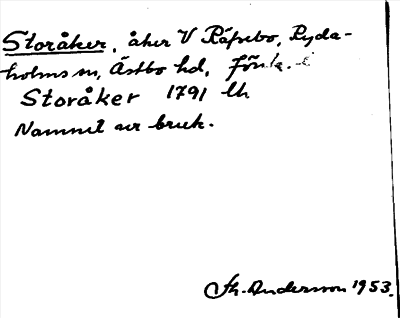 Storåker, åker V Räfsebo, Ryda-
holms sn, Östbo hd,
Storåker 1791 lh
Namnet ur bruk.
Th. Andersson 1953.